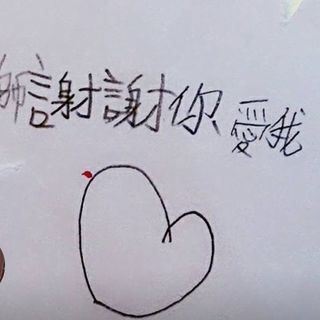 師謝謝你愛我